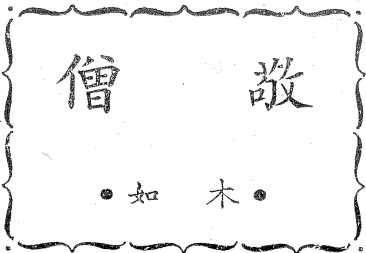 敬僧
●木如●